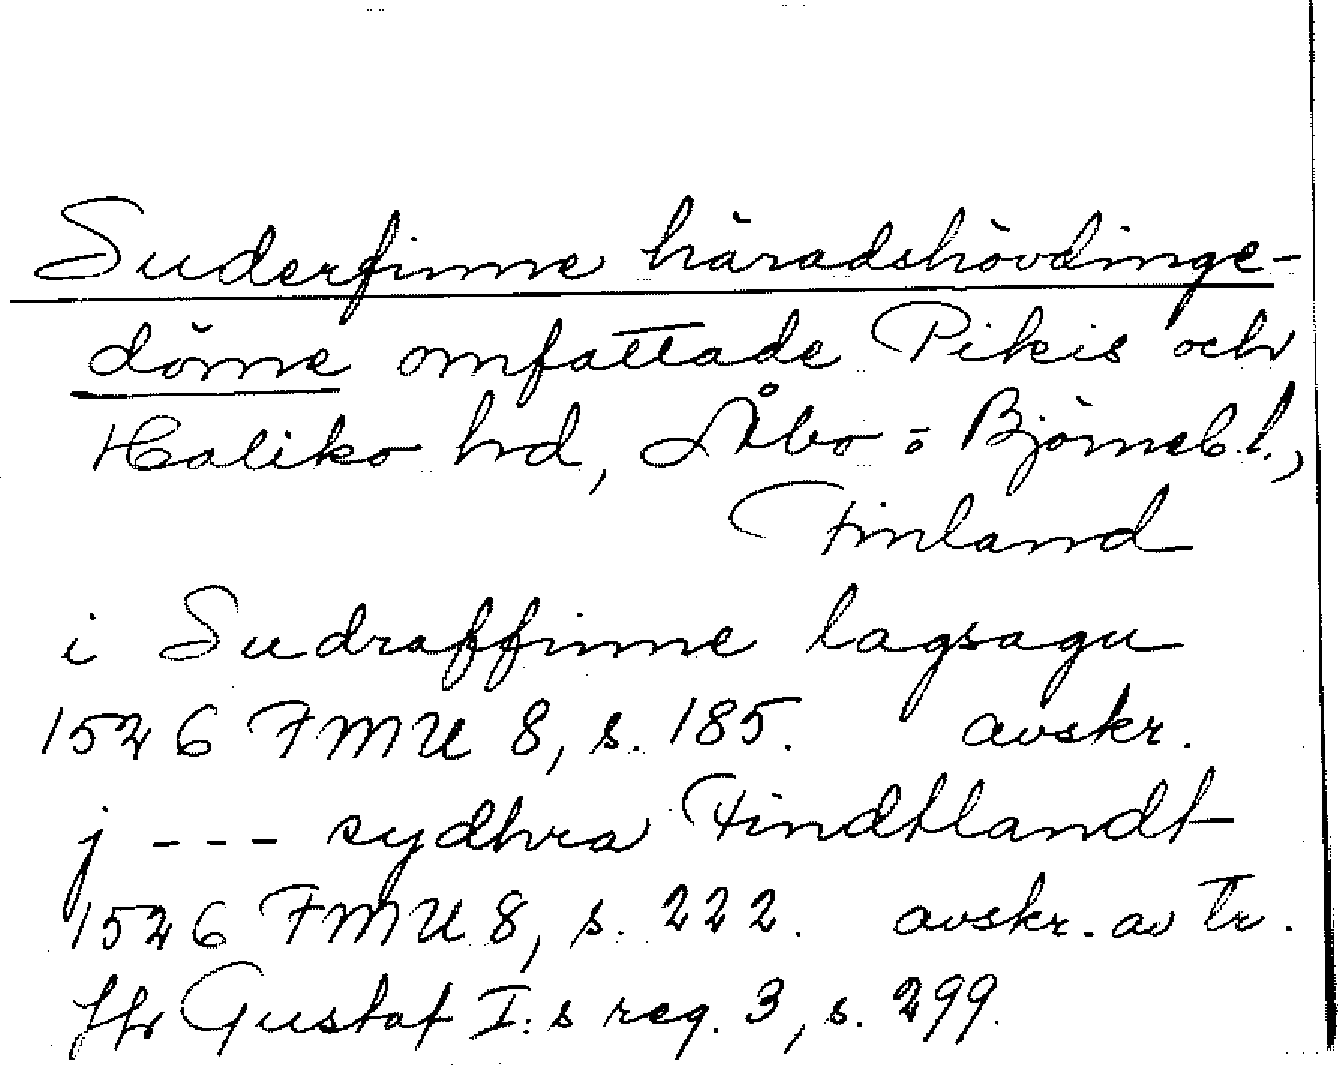 Suderfinne häradshövdinge-
döme omfattade Pikis och
Haliko hd, Åbo o Björneb. l.,
Finland
i Sudraffinne lagsagu
1526 FMU 8, s. 185. avskr.
j --- sydhra Findtlandt
1526 FMU 8, s. 222. avskr. av tr.
Jfr Gustaf I:s reg. 3, s. 299.